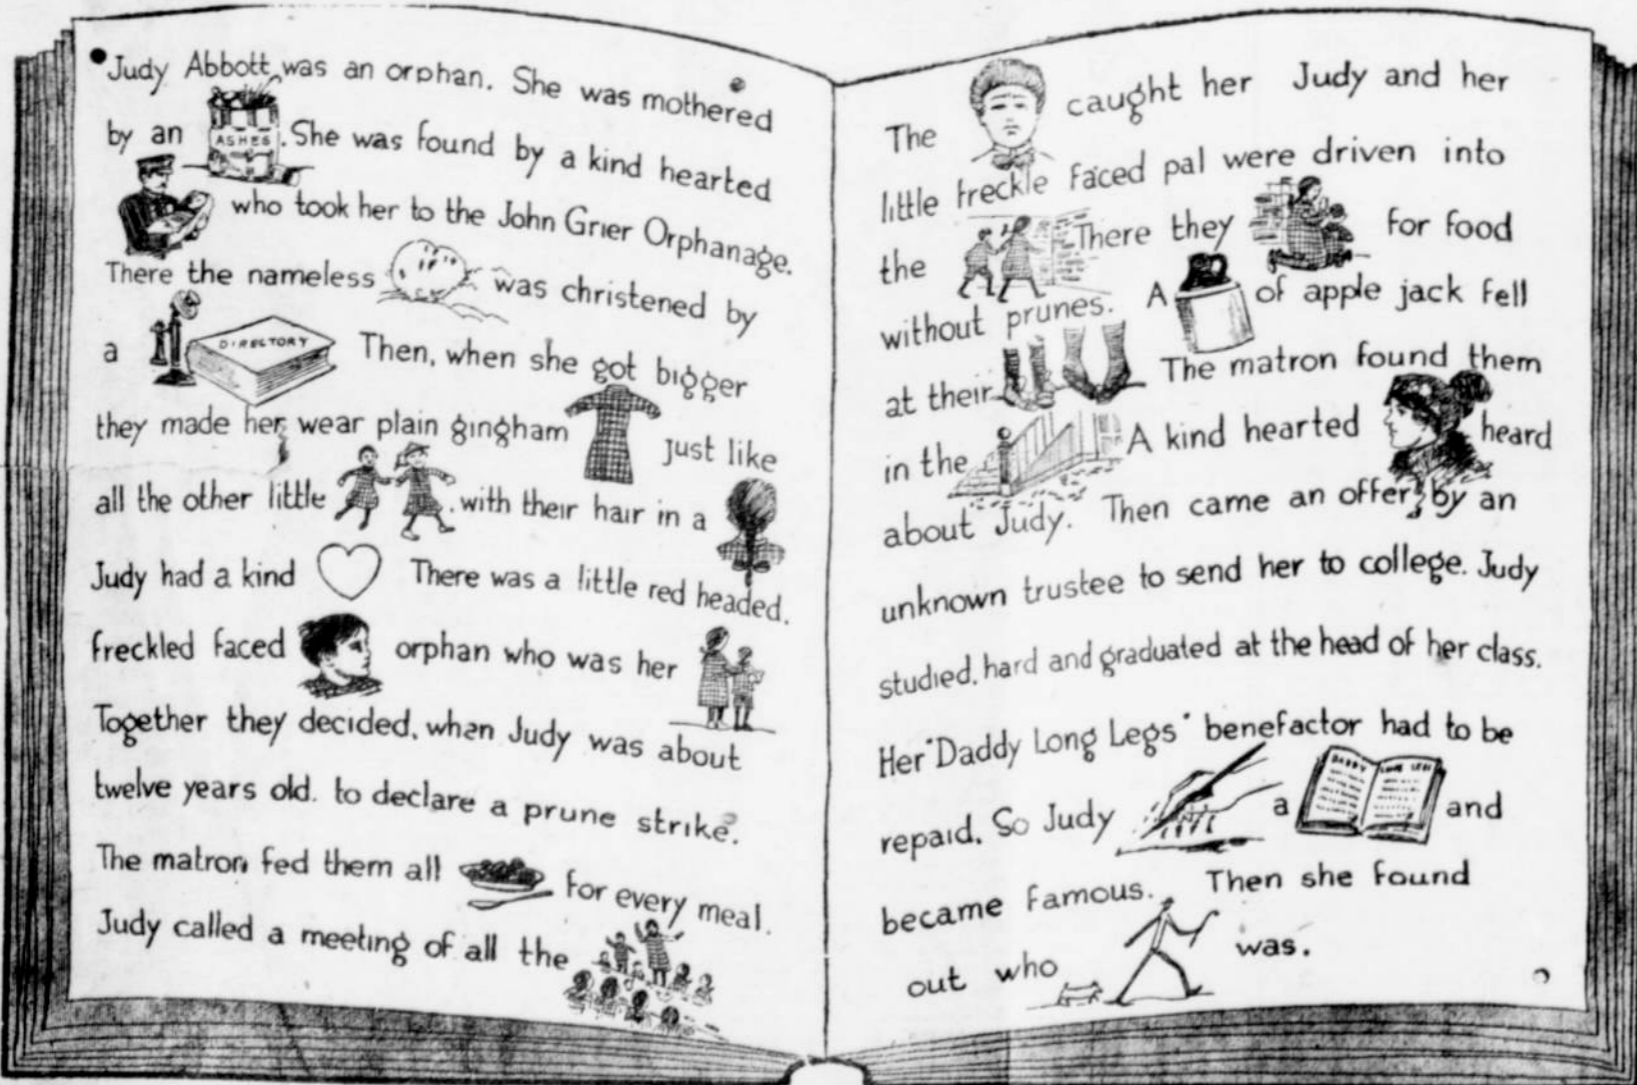 Judy Abbott was an orphan. She was mothered
by an ASHES. She was found by a kind hearted
who took her to the John Grier Orphanage.
There the nameless was christened by
a DIRECTORY Then, when she got bigger
they made her wear plain gingham just like
all the other little with their hair in a
Judy had a kind There was a little red headed.
freckled faced orphan who was her
Together they decided, when Judy was about
twelve years old. to declare a prune strike.
The matron fed them all for every meal.
Judy called a meeting of all the
The caught her Judy and her
little freckle faced pal were driven into
the There they for food
without prunes. A of apple jack fell
at their The matron found them
in the A kind hearted heard
about Judy. Then came an offer, by an
unknown trustee to send her to college. Judy
studied, hard and graduated at the head of her class.
Her "Daddy Long Legs" benefactor had to be
repaid. So Judy a DADDY LONG LEGS and
became famous. Then she found
out who was.